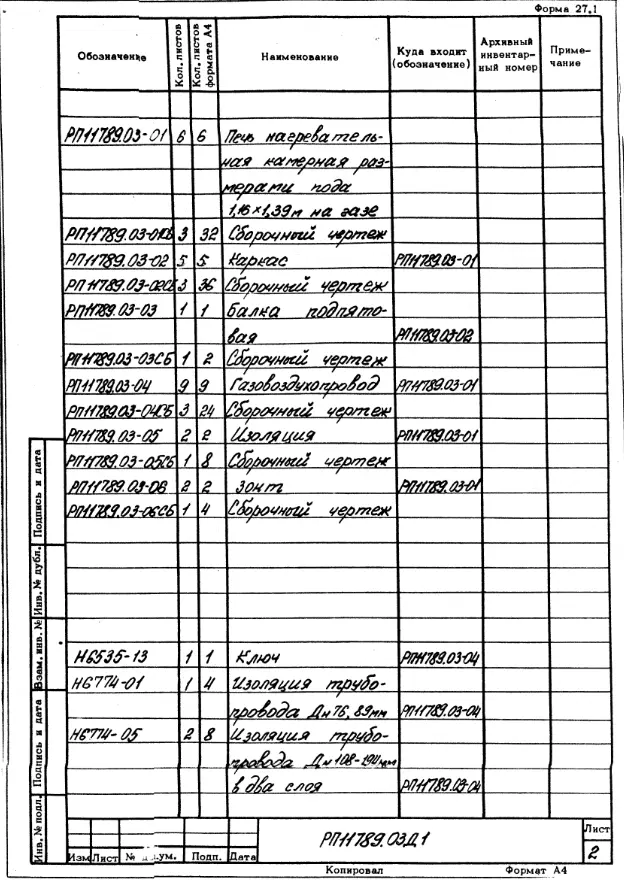 Форма 27.1
Обозначение Кол. листов Кол. листов формата А4 Наименование Куда входит (обозначение) Архивный инвентарный номер Примечание
РП11789.03-01 6 6 Печь нагреватель-
ная камерная раз-
мерами пода
1,16×1,39м на газе
РП11789.03-01СБ 3 32 Сборочный чертеж
РП11789.03-02 5 5 Каркас РП11789.03-01
РП11789.03-02СБ 3 36 Сборочный чертеж
РП11789.03-03 1 1 Балка подпято-
вая РП11789.03-02
РП11789.03-03СБ 1 2 Сборочный чертеж
РП11789.03-04 9 9 Газовоздухопровод РП11789.03-01
РП11789.03-04СБ 3 24 Сборочный чертеж
РП11789.03-05 2 2 Изоляция РП11789.03-01
РП11789.03-05СБ 1 8 Сборочный чертеж
РП11789.03-06 2 2 Зонт РП11789.03-01
РП11789.03-06СБ 1 4 Сборочный чертеж
Н6535-13 1 1 Ключ РП11789.03-04
Н6774-01 1 4 Изоляция трубо-
провода Дн 76, 89мм РП11789.03-04
Н6774-05 2 8 Изоляция трубо-
провода Дн 108-190мм
в два слоя РП11789.03-04
Инв. № подл. Подпись и дата Взам. инв. № Инв. № дубл. Подпись и дата
РП11789.03Д1
Лист
2
Изм Лист № Подп. Дата
Копировал Формат А4